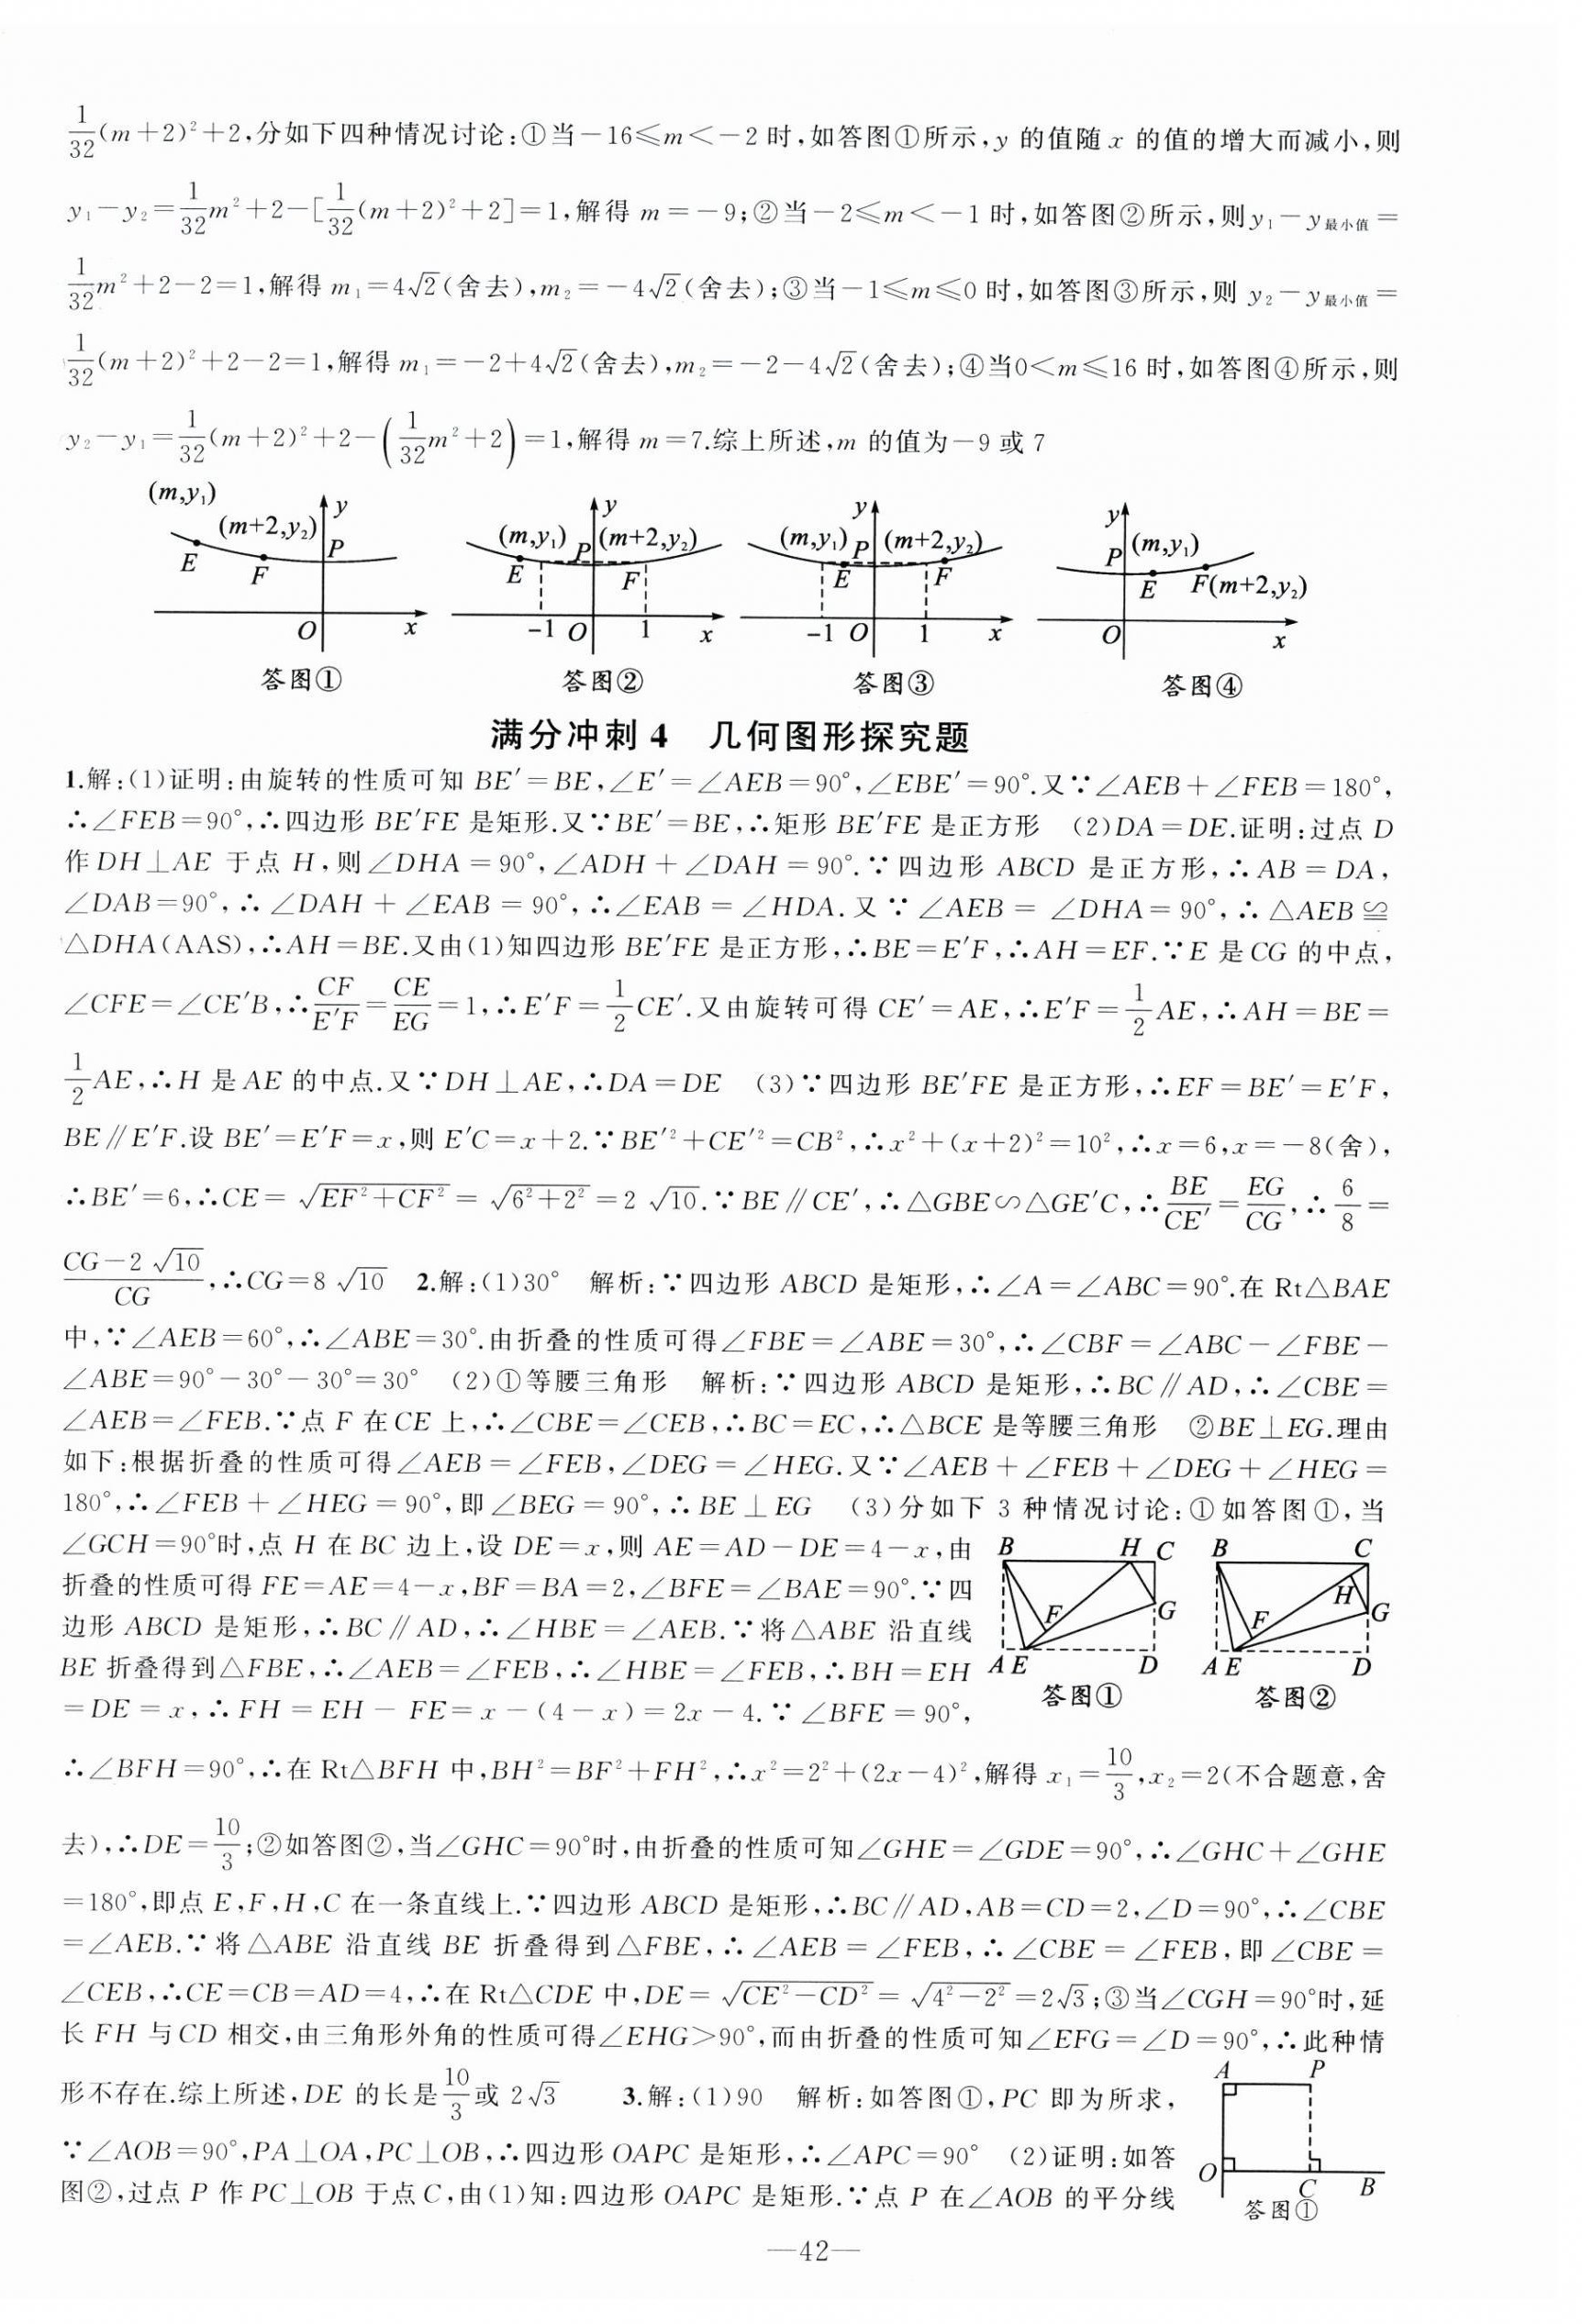 1/32(m+2)²+2,分如下四种情况讨论:①当-16≤m<-2时,如答图①所示,y的值随x的值的增大而减小,则
y₁-y₂=1/32m²+2-[1/32(m+2)²+2]=1,解得m=-9;②当-2≤m<-1时,如答图②所示,则y₁-y最小值=
1/32m²+2-2=1,解得m₁=4√2(舍去),m₂=-4√2(舍去);③当-1≤m≤0时,如答图③所示,则y₂-y最小值=
1/32(m+2)²+2-2=1,解得m₁=-2+4√2(舍去),m₂=-2-4√2(舍去);④当0<m≤16时,如答图④所示,则
y₂-y₁=1/32(m+2)²+2-(1/32m²+2)=1,解得m=7.综上所述,m的值为-9或7
(m,y₁) (m+2,y₂) y P E F O x
(m,y₁) y P (m+2,y₂) E F -1 O 1 x
(m,y₁) y P (m+2,y₂) E F -1 O 1 x
y P (m,y₁) E F(m+2,y₂) O x
答图① 答图② 答图③ 答图④
满分冲刺4 几何图形探究题
1.解:(1)证明:由旋转的性质可知BE′=BE,∠E′=∠AEB=90°,∠EBE′=90°.又∵∠AEB+∠FEB=180°,
∴∠FEB=90°,∴四边形BE′FE是矩形.又∵BE′=BE,∴矩形BE′FE是正方形 (2)DA=DE.证明:过点D
作DH⊥AE于点H,则∠DHA=90°,∠ADH+∠DAH=90°.∵四边形ABCD是正方形,∴AB=DA,
∠DAB=90°,∴∠DAH+∠EAB=90°,∴∠EAB=∠HDA.又∵∠AEB=∠DHA=90°,∴△AEB≌
△DHA(AAS),∴AH=BE.又由(1)知四边形BE′FE是正方形,∴BE=E′F,∴AH=EF.∵E是CG的中点,
∠CFE=∠CE′B,∴CF/E′F=CE/EG=1,∴E′F=1/2CE′.又由旋转可得CE′=AE,∴E′F=1/2AE,∴AH=BE=
1/2AE,∴H是AE的中点.又∵DH⊥AE,∴DA=DE (3)∵四边形BE′FE是正方形,∴EF=BE′=E′F,
BE∥E′F.设BE′=E′F=x,则E′C=x+2.∵BE′²+CE′²=CB²,∴x²+(x+2)²=10²,∴x=6,x=-8(舍),
∴BE′=6,∴CE=√(EF²+CF²)=√(6²+2²)=2√10.∵BE∥CE′,∴△GBE∽△GE′C,∴BE/CE′=EG/CG,∴6/8=
(CG-2√10)/CG,∴CG=8√10 2.解:(1)30° 解析:∵四边形ABCD是矩形,∴∠A=∠ABC=90°.在Rt△BAE
中,∵∠AEB=60°,∴∠ABE=30°.由折叠的性质可得∠FBE=∠ABE=30°,∴∠CBF=∠ABC-∠FBE-
∠ABE=90°-30°-30°=30° (2)①等腰三角形 解析:∵四边形ABCD是矩形,∴BC∥AD,∴∠CBE=
∠AEB=∠FEB.∵点F在CE上,∴∠CBE=∠CEB,∴BC=EC,∴△BCE是等腰三角形 ②BE⊥EG.理由
如下:根据折叠的性质可得∠AEB=∠FEB,∠DEG=∠HEG.又∵∠AEB+∠FEB+∠DEG+∠HEG=
180°,∴∠FEB+∠HEG=90°,即∠BEG=90°,∴BE⊥EG (3)分如下3种情况讨论:①如答图①,当
∠GCH=90°时,点H在BC边上,设DE=x,则AE=AD-DE=4-x,由
折叠的性质可得FE=AE=4-x,BF=BA=2,∠BFE=∠BAE=90°.∵四
边形ABCD是矩形,∴BC∥AD,∴∠HBE=∠AEB.∵将△ABE沿直线
BE折叠得到△FBE,∴∠AEB=∠FEB,∴∠HBE=∠FEB,∴BH=EH
=DE=x,∴FH=EH-FE=x-(4-x)=2x-4.∵∠BFE=90°,
B H C F G A E D
答图①
B C H F G A E D
答图②
∴∠BFH=90°,∴在Rt△BFH中,BH²=BF²+FH²,∴x²=2²+(2x-4)²,解得x₁=10/3,x₂=2(不合题意,舍
去),∴DE=10/3;②如答图②,当∠GHC=90°时,由折叠的性质可知∠GHE=∠GDE=90°,∴∠GHC+∠GHE
=180°,即点E,F,H,C在一条直线上.∵四边形ABCD是矩形,∴BC∥AD,AB=CD=2,∠D=90°,∴∠CBE
=∠AEB.∵将△ABE沿直线BE折叠得到△FBE,∴∠AEB=∠FEB,∴∠CBE=∠FEB,即∠CBE=
∠CEB,∴CE=CB=AD=4,∴在Rt△CDE中,DE=√(CE²-CD²)=√(4²-2²)=2√3;③当∠CGH=90°时,延
长FH与CD相交,由三角形外角的性质可得∠EHG>90°,而由折叠的性质可知∠EFG=∠D=90°,∴此种情
形不存在.综上所述,DE的长是10/3或2√3 3.解:(1)90 解析:如答图①,PC即为所求,
∵∠AOB=90°,PA⊥OA,PC⊥OB,∴四边形OAPC是矩形,∴∠APC=90° (2)证明:如答
图②,过点P作PC⊥OB于点C,由(1)知:四边形OAPC是矩形.∵点P在∠AOB的平分线
A P O C B
答图①
—42—